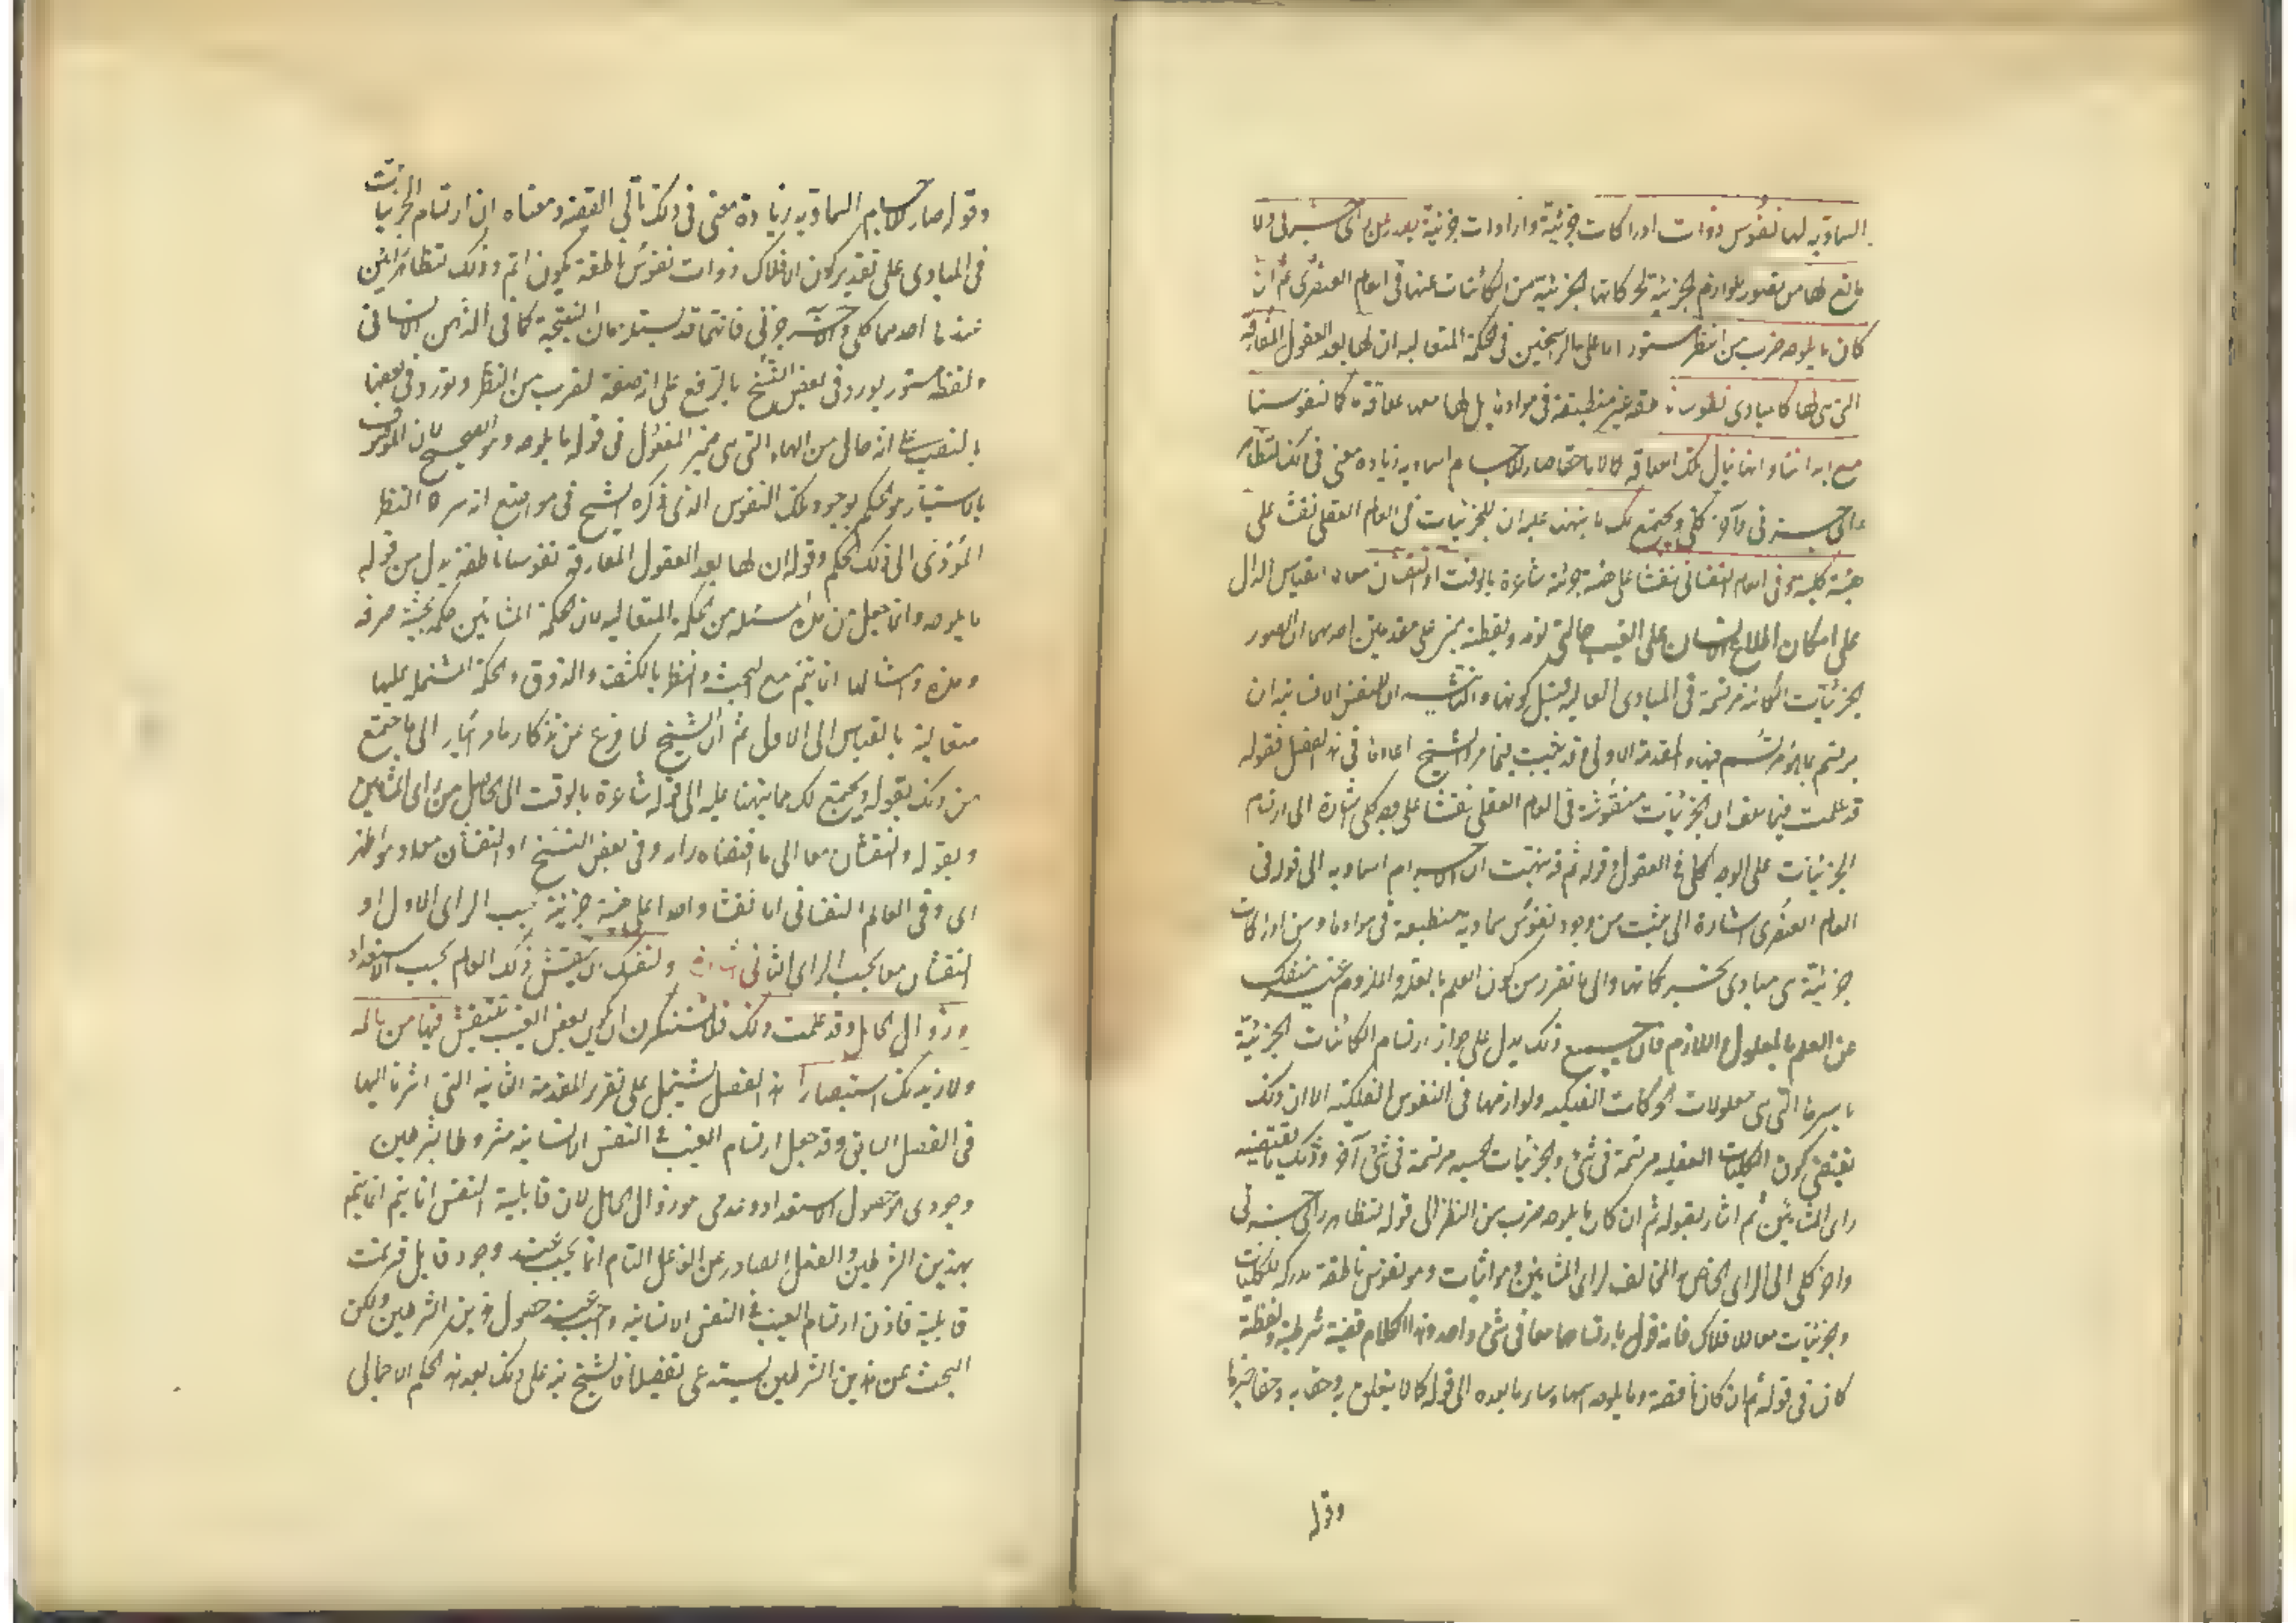 السماوية لها نفوس ذوات ادراكات جزئية وارادات جزئية يصدر عن رأى جزئى ولا
مانع لها من تصور اللوازم الجزئية لحركاتها الجزئية من الكائنات عنها فى العالم العنصرى ثم ان
كان ما يلوحه ضرب من النظر مستورا الا على الراسخين فى الحكمة المتعالية ان لها بعد العقول المفارقة
التى هى لها كالمبادى نفوسا ناطقة غير منطبعة فى موادها بل لها معها علاقة ما كما لنفوسنا
مع ابداننا وانها تنال بتلك العلاقة كمالا ما حقا صار للاجسام السماوية زيادة معنى فى ذلك لتظاهر
رأى جزئى وآخر كلى ويجتمع لك مما نبهنا عليه ان للجزئيات فى العالم العقلى نقشا على
هيئة كلية وفى العالم النفسانى نقشا على هيئة جزئية شاعرة بالوقت او النقشان معا القياس الدال
على امكان اطلاع الانسان على الغيب حالتى نومه ويقظته مبنى على مقدمتين احديهما ان الصور
الجزئيات الكائنة مرتسمة فى المبادى العالية قبل كونها والثانية ان للنفس الانسانية ان
يرتسم بما هو مرتسم فيها والمقدمة الاولى قد ثبتت فيما مر والشيخ اعادها فى هذا الفصل فقوله
قد علمت فيما سلف ان الجزئيات منقوشة فى العالم العقلى نقشا على وجه كلى اشارة الى ارتسام
الجزئيات على الوجه الكلى فى العقول وقوله ثم قد نبهت ان الاجرام السماوية الى قوله فى
العالم العنصرى اشارة الى ما ثبت من وجود نفوس سماوية منطبعة فى موادها ومن ادراكات
جزئية هى مبادى تحريكاتها والى ما تقرر من كون العلم بالعلة والملزوم غير منفك
عن العلم بالمعلول واللازم فان جميع ذلك يدل على جواز ارتسام الكائنات الجزئية
باسرها التى هى معلولات الحركات الفلكية ولوازمها فى النفوس الفلكية الا ان ذلك
يقتضى كون الكليات العقلية مرتسمة فى شئ والجزئيات الحسية مرتسمة فى شئ آخر وذلك ما يقتضيه
راى المشائين ثم اشار بقوله ثم ان كان ما يلوحه ضرب من النظر الى قوله لتظاهر رأى جزئى
وآخر كلى الى الراى الخاص به المخالف لراى المشائين وهو اثبات نفوس ناطقة مدركة للكليات
والجزئيات معا للافلاك فانه قول بارتسامهما معا فى شئ واحد وهذا الكلام قضية شرطية ولفظة
كان فى قوله ثم ان كان ناقصة وما يلوحه اسمها وسائر ما بعده الى قوله كمالا يتعلق به وحقا خبرها
وقوله
وقوله صار للاجسام السماوية زيادة معنى فى ذلك تالى القضية ومعناه ان ارتسام الجزئيات
فى المبادى على تقدير كون الافلاك ذوات نفوس ناطقة يكون اتم وذلك لتظاهر رأيين
عندها احدهما كلى والآخر جزئى فانهما قد يستلزمان النتيجة كما فى الذهن الانسانى
ولفظة مستور يورد فى بعض النسخ بالرفع على انه صفة لضرب من النظر وتورد فى بعضها
بالنصب على انه حال من الهاء التى هى ضمير المفعول فى قوله ما يلوحه وهو الصحيح لان الموصوف
بالاستتار هو الحكم بوجود تلك النفوس الذى ذكره الشيخ فى مواضع انه سر لا النظر
المؤدى الى ذلك الحكم وقوله ان لها بعد العقول المفارقة نفوسا ناطقة بدل من قوله
ما يلوحه وانما جعل هذه المسئلة من الحكمة المتعالية لان حكمة المشائين حكمة بحثية صرفة
وهذه وامثالها انما تتم مع البحث والنظر بالكشف والذوق والحكمة المشتملة عليها
متعالية بالقياس الى الاول ثم ان الشيخ لما فرغ عن تذكار ما مر اشار الى ما اجتمع
من ذلك بقوله ويجتمع لك مما نبهنا عليه الى قوله شاعرة بالوقت الى الحاصل من راى المشائين
وبقوله والنقشان معا الى ما اقتضاه رايه وفى بعض النسخ او النقشان معا وهو اظهر
اى وفى العالم النفسانى اما نقشا واحدا على هيئة جزئية بحسب الراى الاول او
النقشان معا بحسب الراى الثانى اشارة ولنفسك ان تنتقش بنقش ذلك العالم بحسب الاستعداد
وزوال الحائل وقد علمت ذلك فلا تستنكرن ان يكون بعض الغيب ينتقش فيها من عالمه
ولازيدنك استبصارا هذا الفصل يشتمل على تقرير المقدمة الثانية التى اشرنا اليها
فى الفصل السابق وقد جعل ارتسام الغيب فى النفس الانسانية مشروطا بشرطين
وجودى هو حصول الاستعداد وعدمى هو زوال الحائل لان قابلية النفس انما يتم
بهذين الشرطين والفعل الصادر عن الفاعل التام انما يجب عند وجود قابل قد تمت
قابلية فاذن ارتسام الغيب فى النفس الانسانية واجب عند حصول هذين الشرطين ولكن
البحث عن هذين الشرطين يستدعى تفصيلا فالشيخ نبه على ذلك بعد هذا الحكم الاجمالى